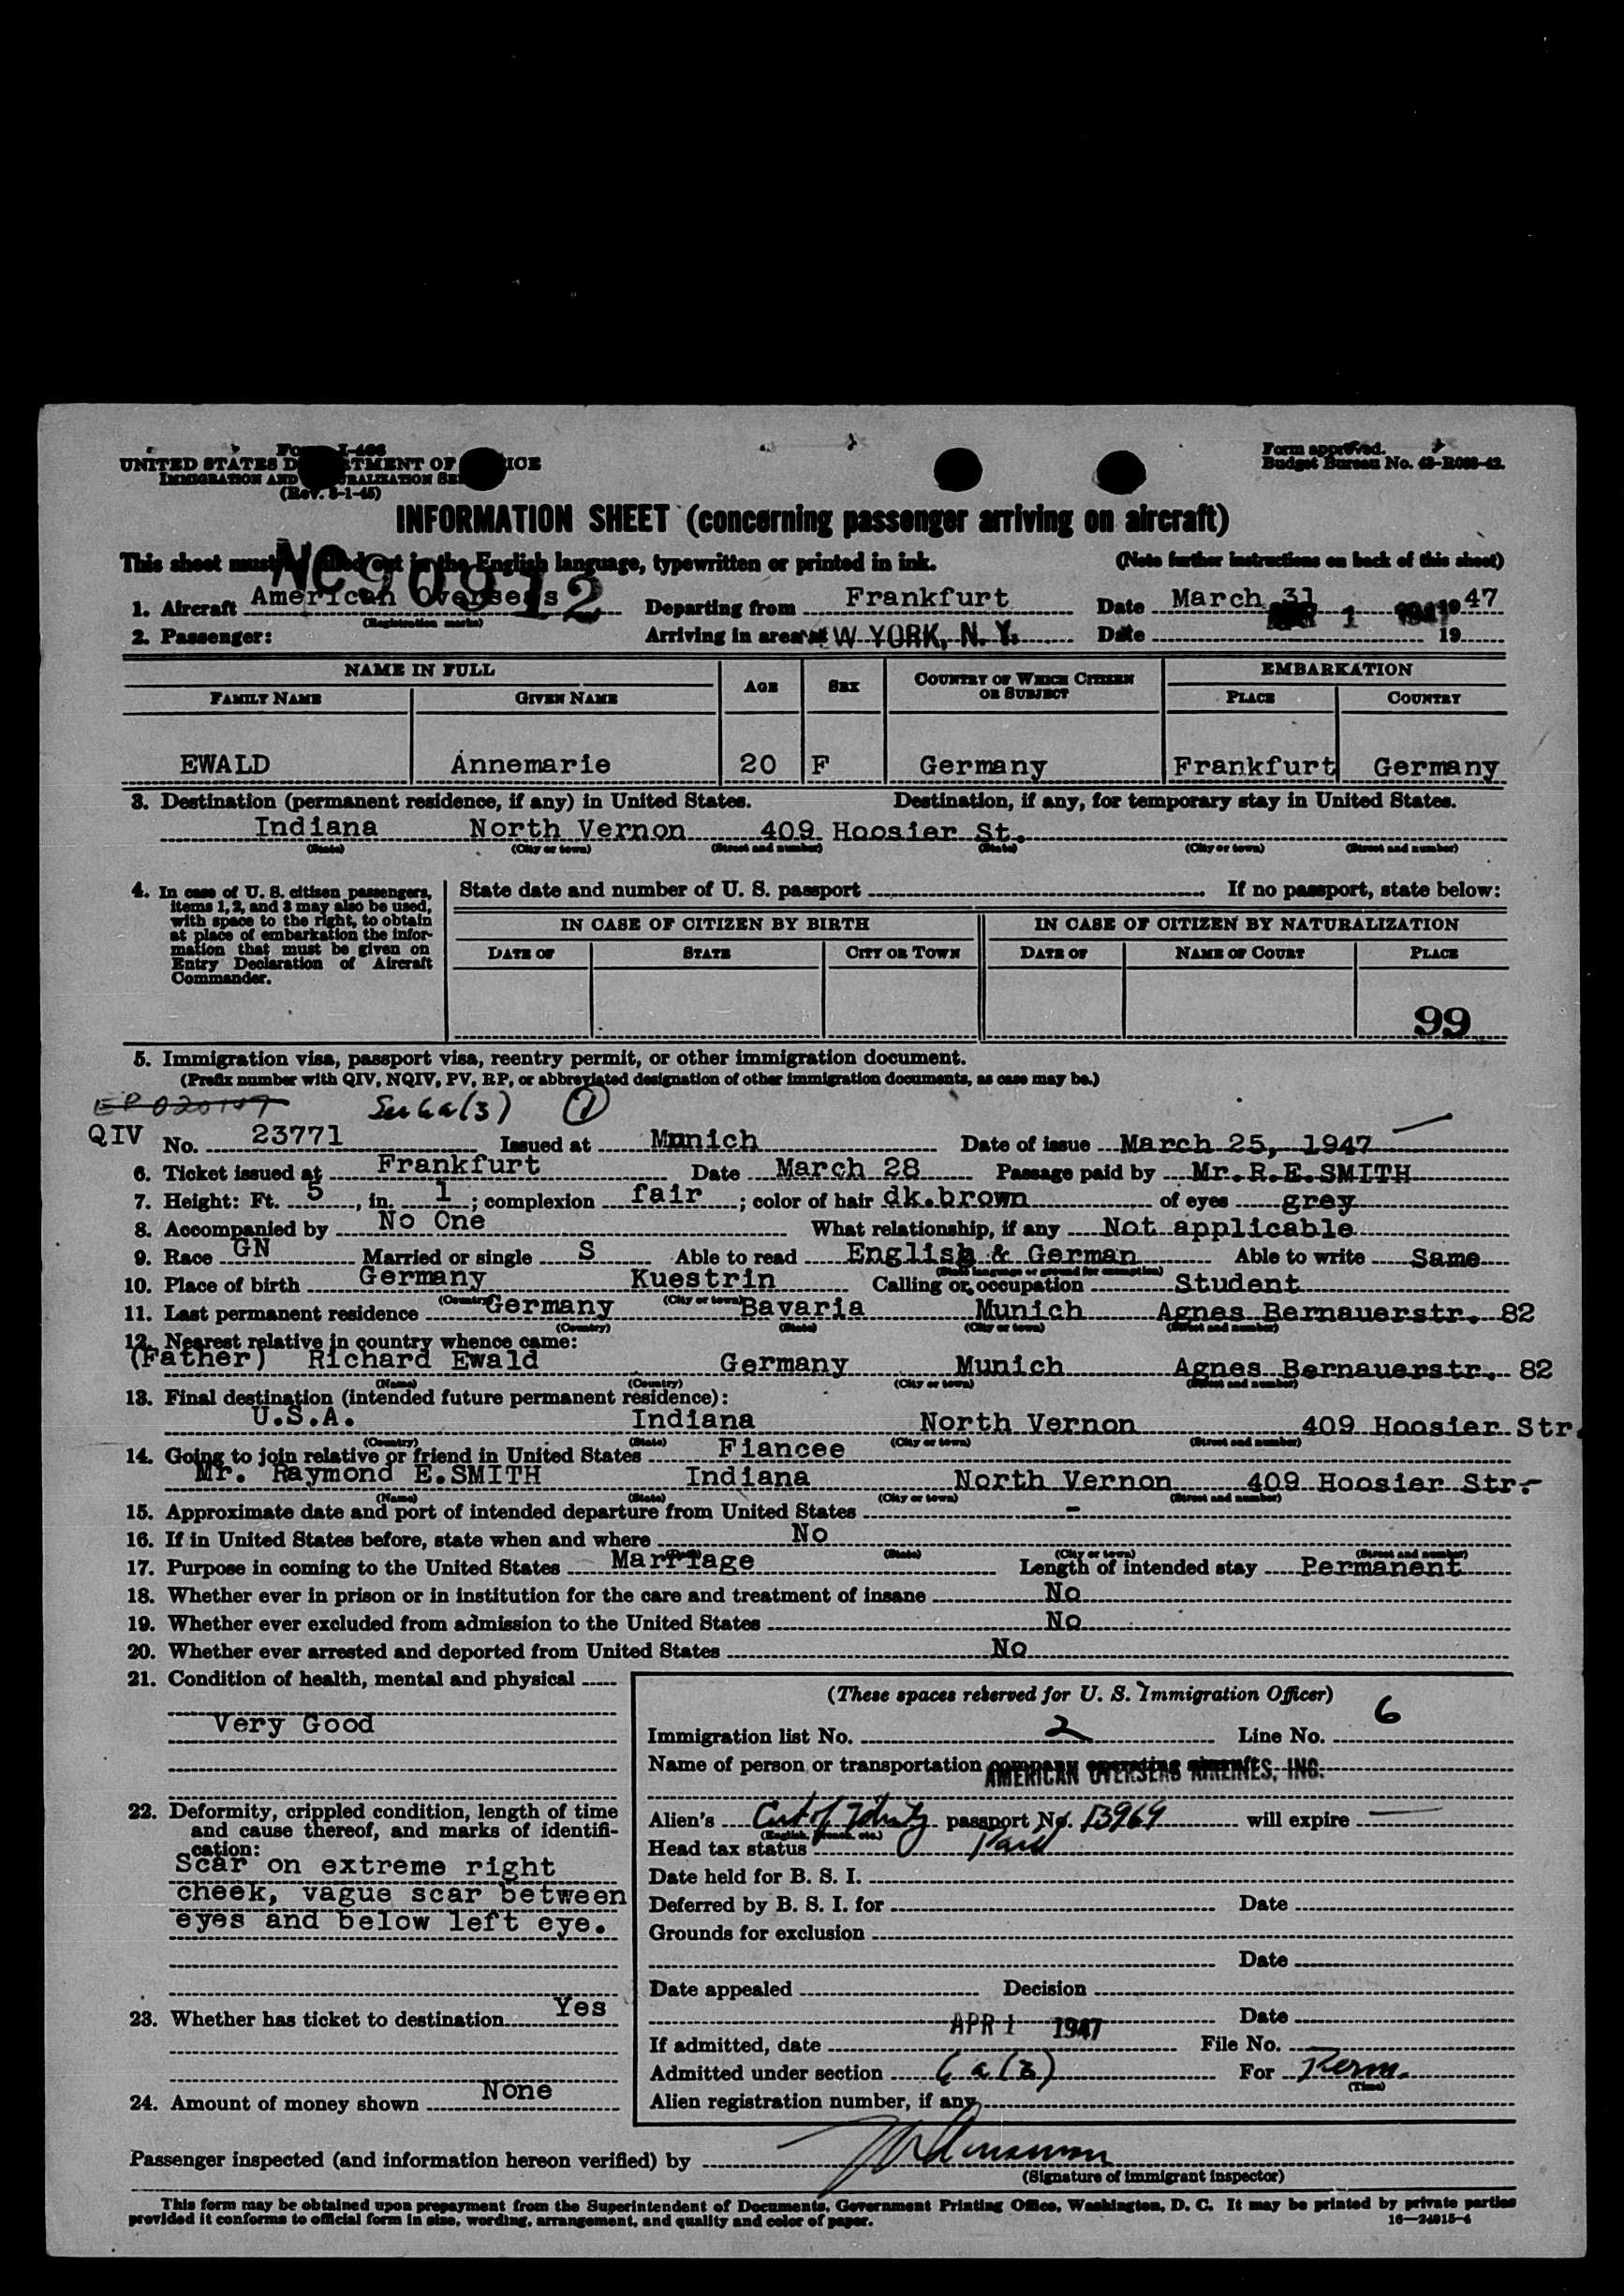 Form I-466
UNITED STATES DEPARTMENT OF JUSTICE
IMMIGRATION AND NATURALIZATION SERVICE
(Rev. 3-1-45)
Form approved.
Budget Bureau No.
INFORMATION SHEET (concerning passenger arriving on aircraft)
This sheet must be filled out in the English language, typewritten or printed in ink. (Note further instructions on back of this sheet)
NC90912
1. Aircraft American Overseas Departing from Frankfurt Date March 31 1947
(Registration marks)
2. Passenger: Arriving in area at W YORK, N. Y. Date 1 1947 19
NAME IN FULL AGE SEX COUNTRY OF WHICH CITIZEN OR SUBJECT EMBARKATION
FAMILY NAME GIVEN NAME PLACE COUNTRY
EWALD Annemarie 20 F Germany Frankfurt Germany
3. Destination (permanent residence, if any) in United States. Destination, if any, for temporary stay in United States.
Indiana North Vernon 409 Hoosier St.
(State) (City or town) (Street and number) (State) (City or town) (Street and number)
4. In case of U. S. citizen passengers, items 1, 2, and 3 may also be used, with space to the right, to obtain at place of embarkation the information that must be given on Entry Declaration of Aircraft Commander.
State date and number of U. S. passport If no passport, state below:
IN CASE OF CITIZEN BY BIRTH IN CASE OF CITIZEN BY NATURALIZATION
DATE OF STATE CITY OR TOWN DATE OF NAME OF COURT PLACE
99
5. Immigration visa, passport visa, reentry permit, or other immigration document.
(Prefix number with QIV, NQIV, PV, RP, or abbreviated designation of other immigration documents, as case may be.)
6a(3) 1
QIV No. 23771 Issued at Munich Date of issue March 25, 1947
6. Ticket issued at Frankfurt Date March 28 Passage paid by Mr.R.E.SMITH
7. Height: Ft. 5, in. 1; complexion fair; color of hair dk.brown of eyes grey
8. Accompanied by No One What relationship, if any Not applicable
9. Race GN Married or single S Able to read English & German Able to write Same
(State language or ground for exemption)
10. Place of birth Germany Kuestrin Calling or occupation Student
(Country) (City or town)
11. Last permanent residence Germany Bavaria Munich Agnes Bernauerstr. 82
(Country) (State) (City or town) (Street and number)
12. Nearest relative in country whence came:
(Father) Richard Ewald Germany Munich Agnes Bernauerstr. 82
(Name) (Country) (City or town) (Street and number)
13. Final destination (intended future permanent residence):
U.S.A. Indiana North Vernon 409 Hoosier Str.
(Country) (State) (City or town) (Street and number)
14. Going to join relative or friend in United States Fiancee
Mr. Raymond E.SMITH Indiana North Vernon 409 Hoosier Str.-
(Name) (State) (City or town) (Street and number)
15. Approximate date and port of intended departure from United States -
16. If in United States before, state when and where No
(State) (City or town) (Street and number)
17. Purpose in coming to the United States Marriage Length of intended stay Permanent
18. Whether ever in prison or in institution for the care and treatment of insane No
19. Whether ever excluded from admission to the United States No
20. Whether ever arrested and deported from United States No
21. Condition of health, mental and physical
Very Good
22. Deformity, crippled condition, length of time
and cause thereof, and marks of identifi-
cation:
Scar on extreme right
cheek, vague scar between
eyes and below left eye.
23. Whether has ticket to destination Yes
24. Amount of money shown None
(These spaces reserved for U. S. Immigration Officer)
Immigration list No. 2 Line No. 6
Name of person or transportation company operating aircraft AMERICAN OVERSEAS AIRLINES, INC.
Alien's passport No. 53969 will expire
(English, French, etc.)
Head tax status Paid
Date held for B. S. I.
Deferred by B. S. I. for Date
Grounds for exclusion
Date
Date appealed Decision
Date
If admitted, date APR 1 1947 File No.
Admitted under section 6 a (3) For Perm.
(Time)
Alien registration number, if any
Passenger inspected (and information hereon verified) by
(Signature of immigrant inspector)
This form may be obtained upon prepayment from the Superintendent of Documents, Government Printing Office, Washington, D. C. It may be printed by private parties
provided it conforms to official form in size, wording, arrangement, and quality and color of paper. 16—24915-4